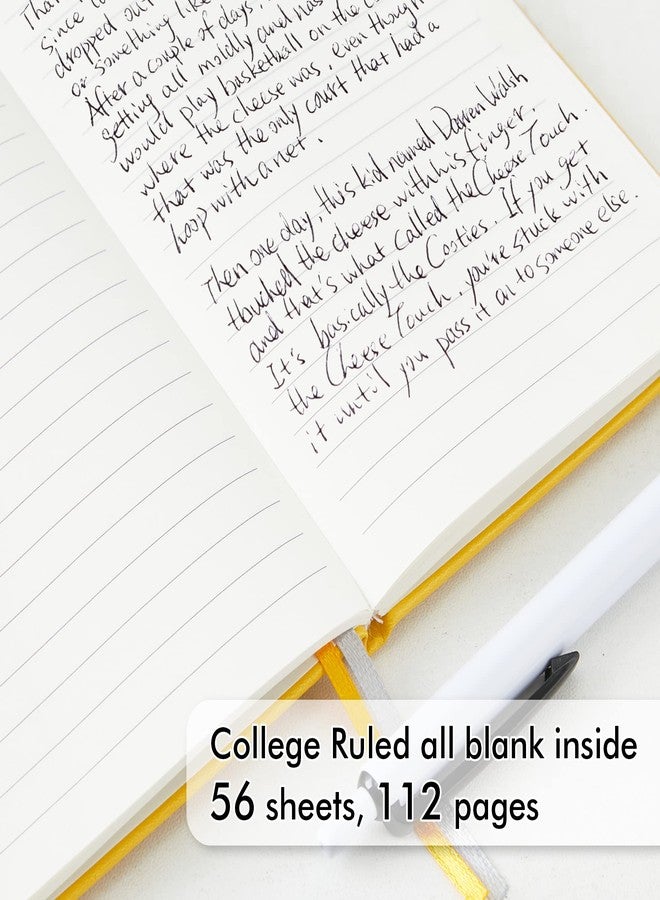 Than
since
dropped out
or something like
After a couple of days,
getting all moldly and nas
would play basketball on the c
where the cheese was, even though
that was the only court that had a
hoop with a net.
Then one day, this kid named Darren Walsh
touched the cheese with his finger.
and that's what called the Cheese Touch.
It's basically the Cooties. If you get
the Cheese Touch, you're stuck with
it until you pass it on to someone else.
College Ruled all blank inside
56 sheets, 112 pages